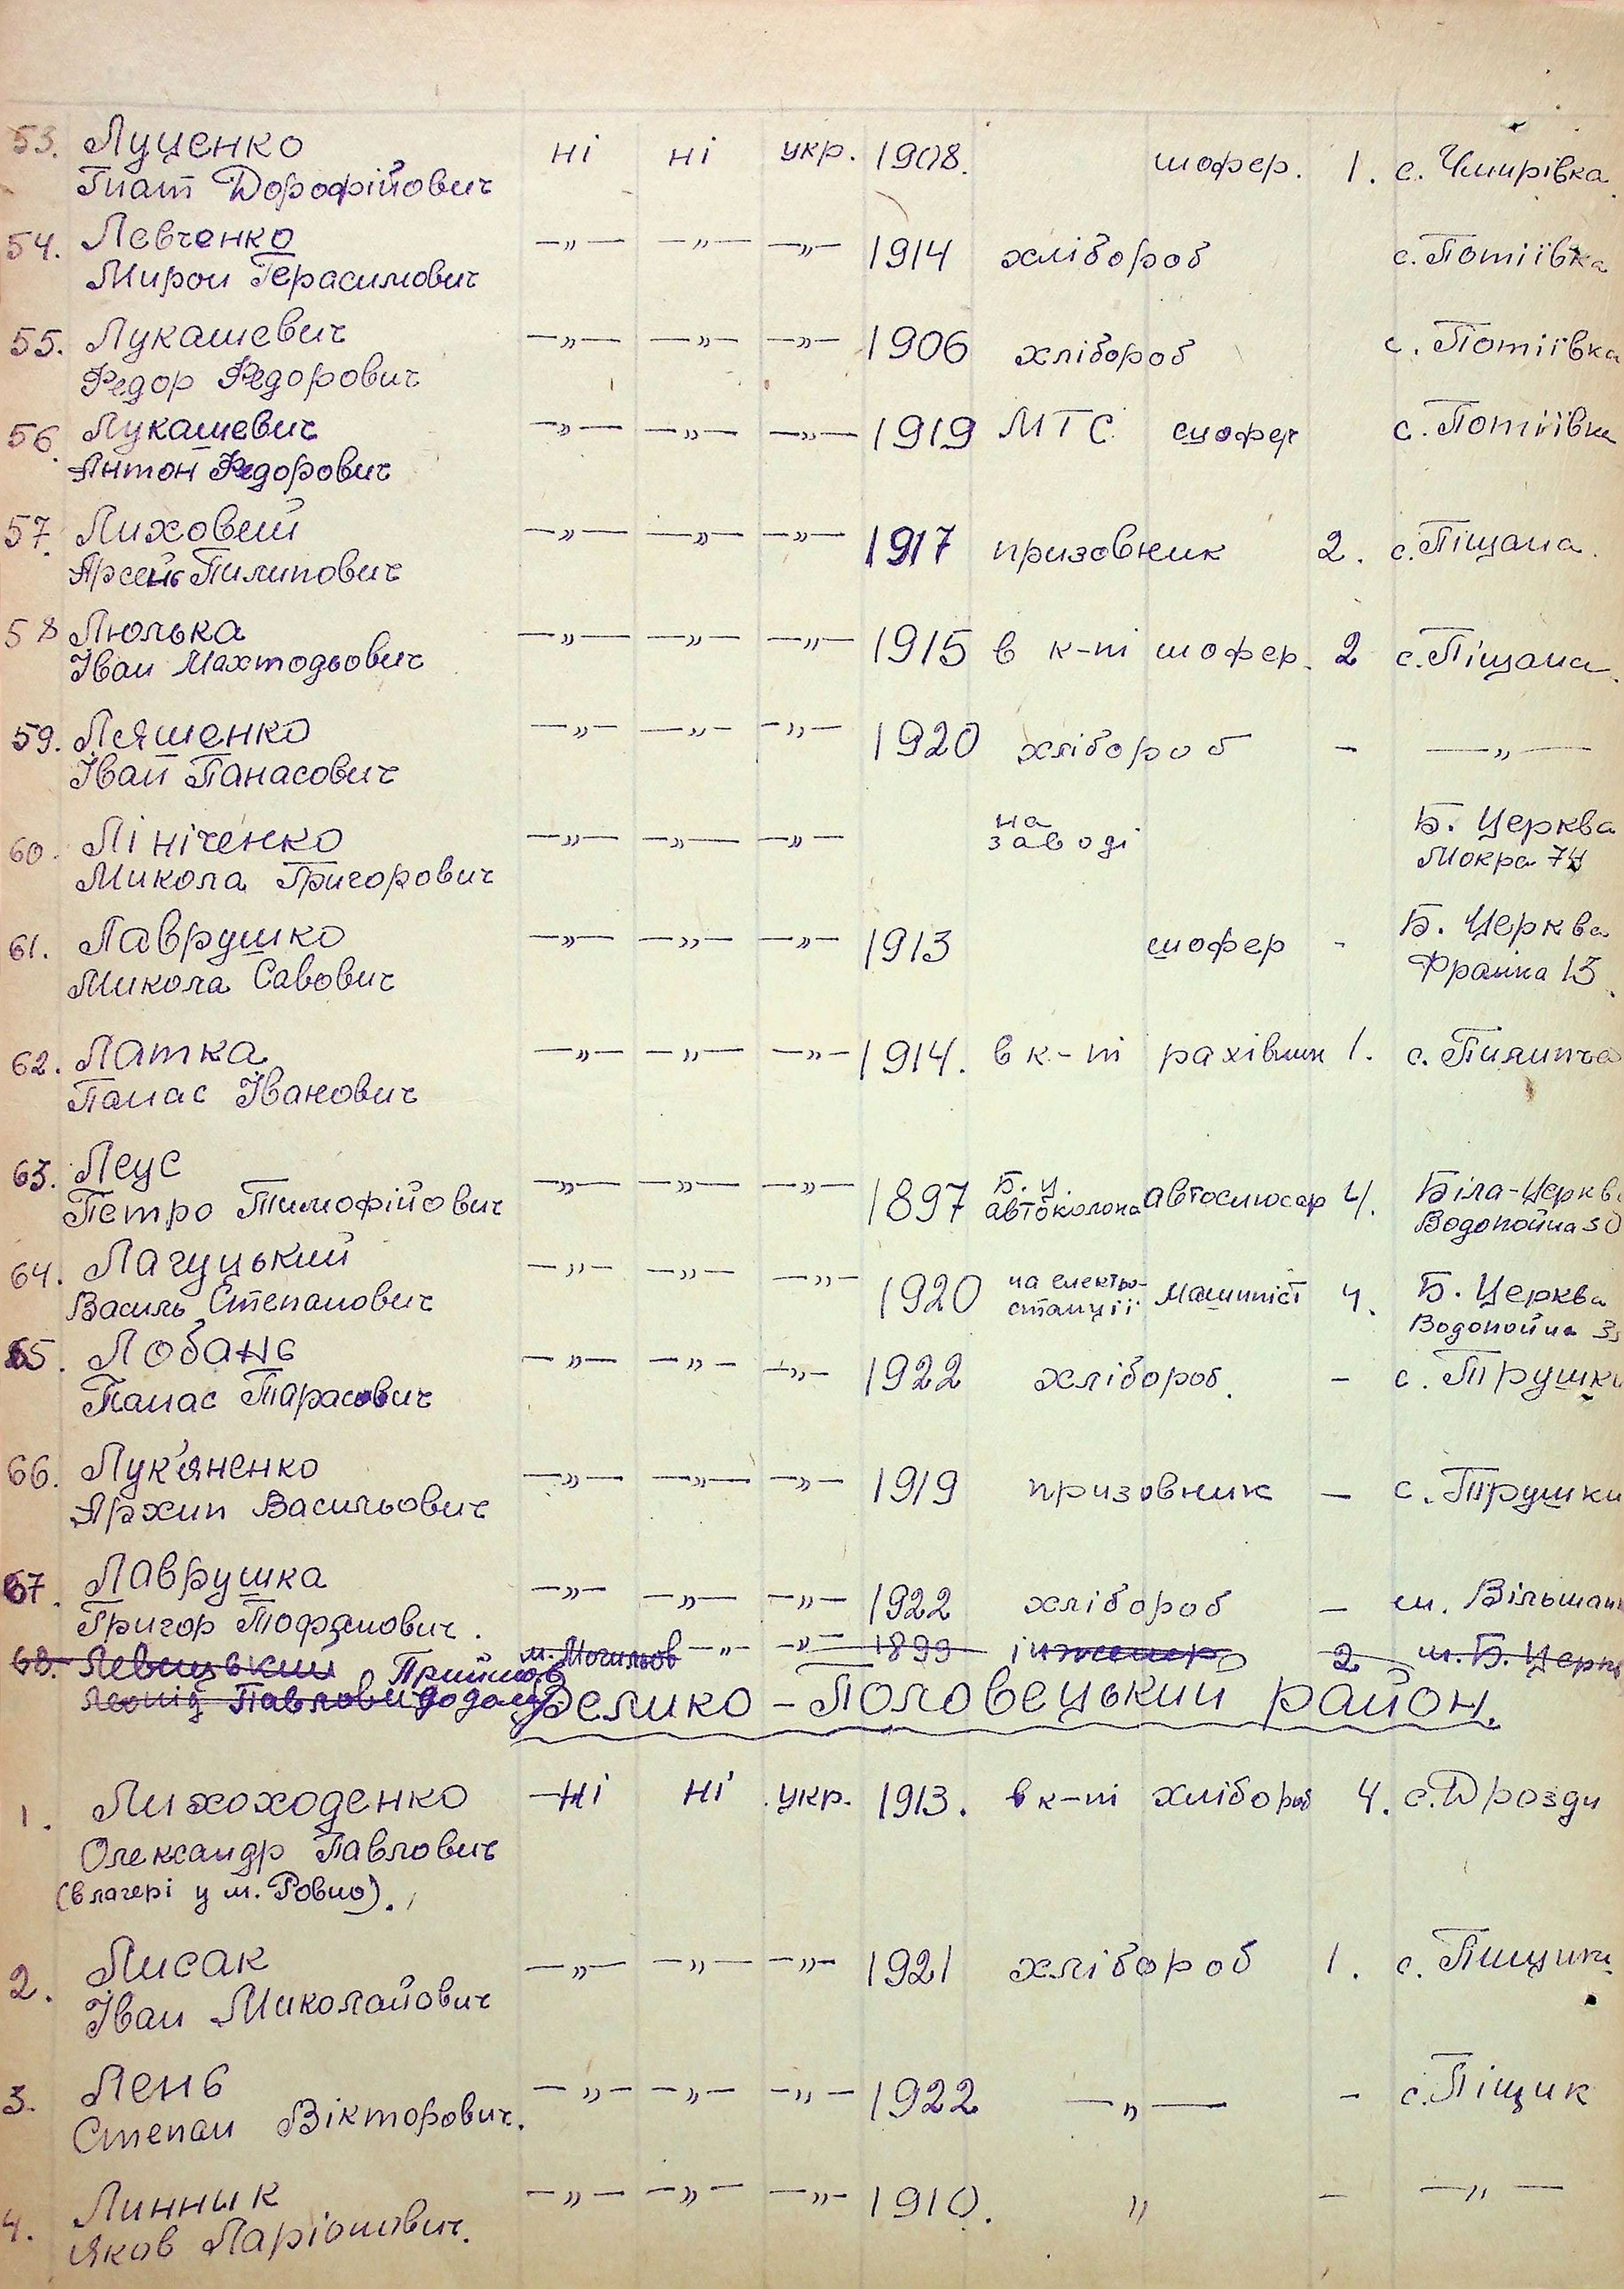 53. Луценко ні ні укр. 1908. шофер. 1. с. Чмирівка
Гнат Дорофійович
54. Левченко —„— —„— —„— 1914 хлібороб с. Потіївка
Мирон Герасимович
55. Лукашевич —„— —„— —„— 1906 хлібороб с. Потіївка
Федор Федорович
56. Лукашевич —„— —„— —„— 1919 МТС. шофер с. Потіївка
Антон Федорович
57. Лиховий —„— —„— —„— 1917 призовник 2. с. Піщана.
Арсень Пилипович
58 Люлька —„— —„— —„— 1915 в к-пі шофер. 2 с. Піщана.
Іван Махтодьович
59. Ляшенко —„— —„— —„— 1920 хлібороб - —„—
Іван Панасович
60. Лініченко —„— —„— —„— на заводі Б. Церква
Микола Григорович Мокра 74
61. Лаврушко —„— —„— —„— 1913 шофер - Б. Церква
Микола Савович Франка 13.
62. Латка —„— —„— —„— 1914. в к-пі рахівник 1. с. Пилипча
Панас Іванович
63. Леус —„— —„— —„— 1897 Б. Ц. автоколона автослюсар 4. Біла-Церква
Петро Тимофійович Водопойна 30
64. Лагуцький —„— —„— —„— 1920 на електро-станції машиніст 4. Б. Церква
Василь Степанович Водопойна
65. Лобань —„— —„— —„— 1922 хлібороб. - с. Трушки
Панас Тарасович
66. Лук'яненко —„— —„— —„— 1919 призовник — с. Трушки
Архип Васильович
67. Лаврушка —„— —„— —„— 1922 хлібороб — м. Вільшанк
Григор Тофанович.
68. Левицький Прийшов м. Могильов —„— —„— 1899 інженер 2 м. Б. Церкв
Леонід Павлович додому
Велико-Половецький район.
1. Лихоходенко ні ні укр. 1913. в к-пі хлібороб 4. с. Дрозди
Олександр Павлович
(в лагері у м. Ровно).
2. Лисак —„— —„— —„— 1921 хлібороб 1. с. Пищики
Іван Миколайович
3. Лень —„— —„— —„— 1922 —„— - с. Піщик
Степан Вікторович.
4. Линнык —„— —„— —„— 1910. „ — —„—
Яков Ларіонович.